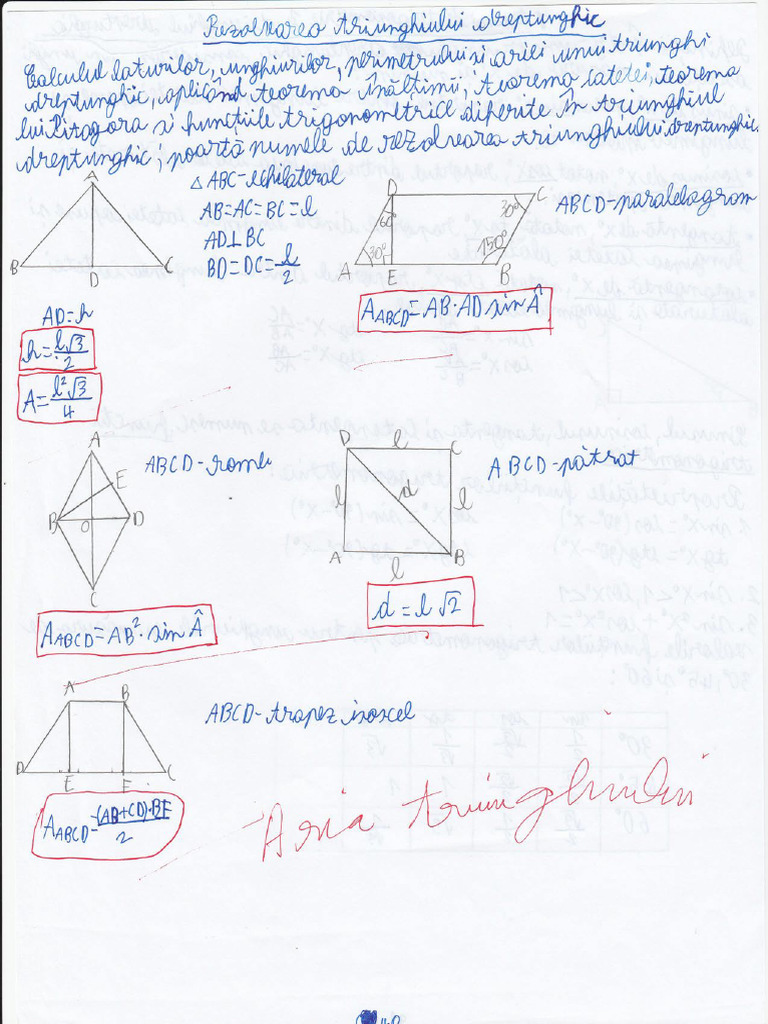 Rezolvarea triunghiului dreptunghic
Calculul laturilor, unghiurilor, perimetrului si ariei unui triunghi
dreptunghic, aplicând, teorema înălțimii, teorema catetei, teorema
lui Pitagora si funcțiile trigonometrice diferite în triunghiul
dreptunghic; poartă numele de rezolvarea triunghiului dreptunghic.
A
B
D
C
△ ABC-echilateral
AB=AC=BC=l
AD⊥BC
BD=DC=l/2
AD=h
h=l√3/2
A=l²√3/4
D
C
60°
30°
30°
150°
A
E
B
ABCD-paralelogram
A ABCD=AB·AD sin Â
A
E
B
O
D
C
ABCD-romb
A ABCD=AB²·sin Â
D
l
C
l
d
l
A
l
B
ABCD-pătrat
d=l√2
A
B
D
E
E
C
ABCD-trapez isoscel
A ABCD=(AB+CD)·BE/2
Aria triunghiului